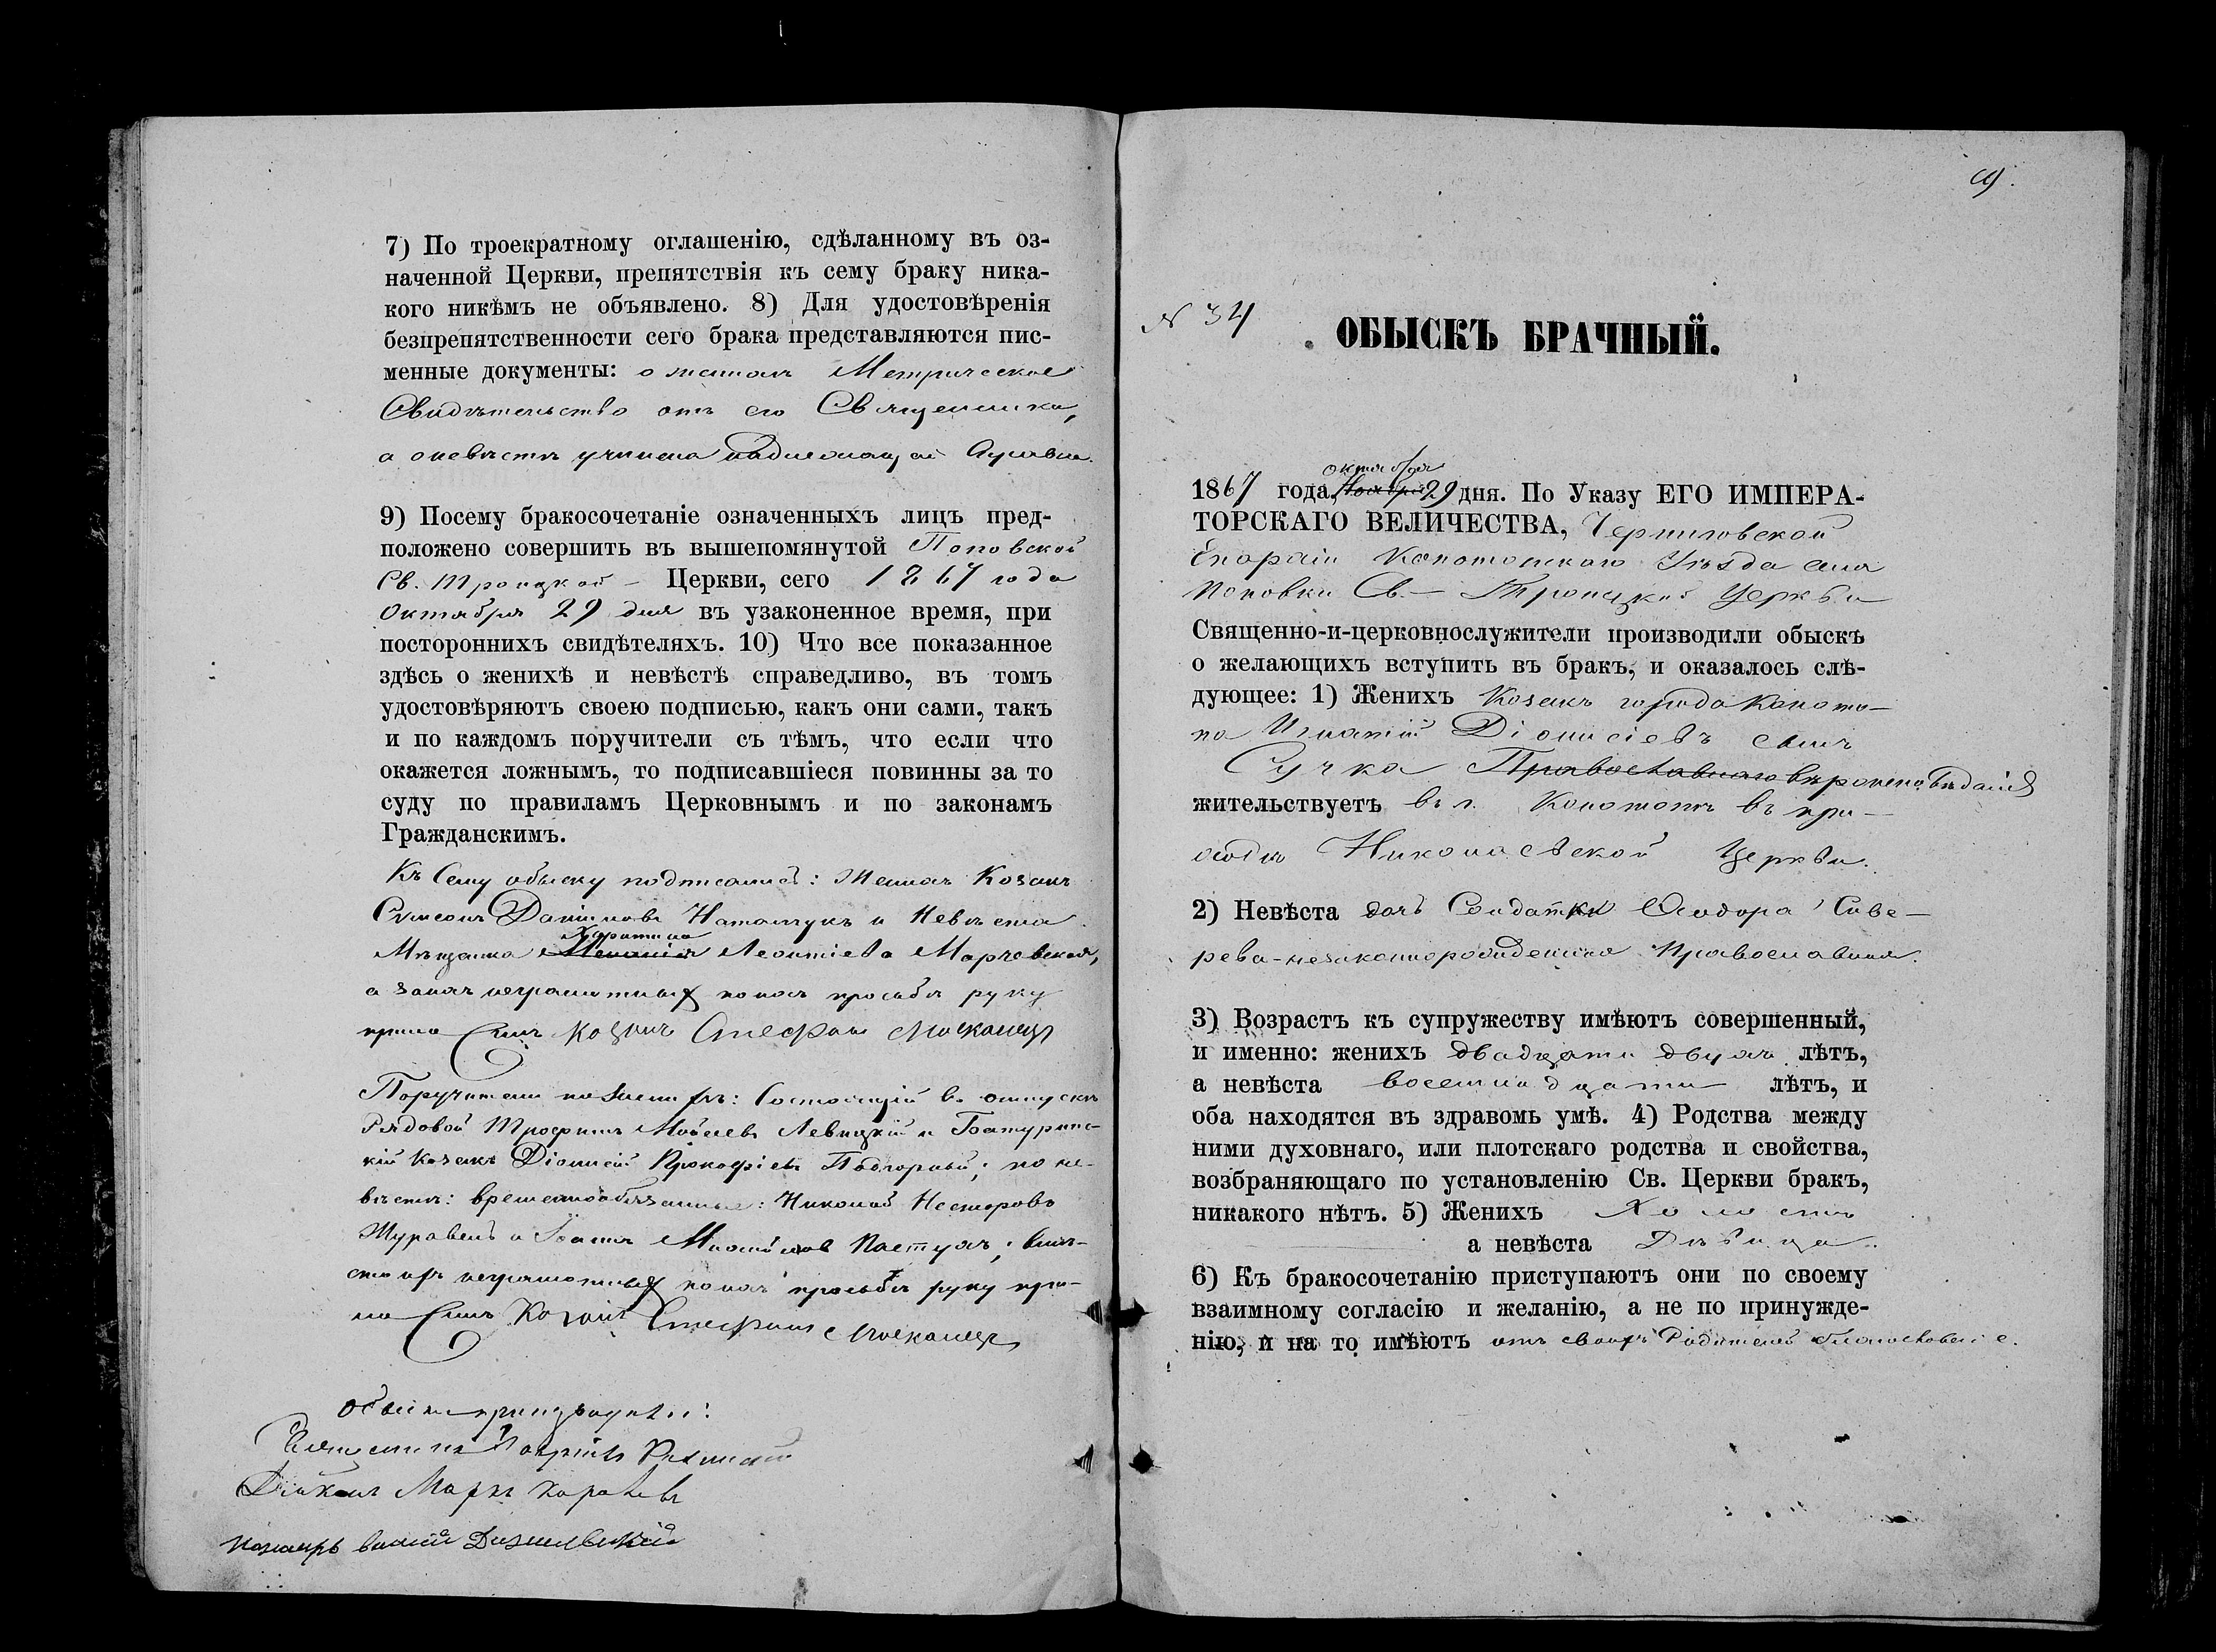 7) По троекратному оглашенію, сдѣланному въ оз-
наченной Церкви, препятствія къ сему браку ника-
кого никѣмъ не объявлено. 8) Для удостовѣренія
безпрепятственности сего брака представляются пис-
менные документы: о женихѣ Метрическое
Свидѣтельство отъ его Священника,
а о невѣстѣ учинена надлежащая справка.
9) Посему бракосочетаніе означенныхъ лицъ пред-
положено совершить въ вышепомянутой Поповской
Св. Троицкой - Церкви, сего 1867 года
Октября 29 дня въ узаконенное время, при
постороннихъ свидѣтеляхъ. 10) Что все показанное
здѣсь о женихѣ и невѣстѣ справедливо, въ томъ
удостовѣряютъ своею подписью, какъ они сами, такъ
и по каждомъ поручители съ тѣмъ, что если что
окажется ложнымъ, то подписавшіеся повинны за то
суду по правиламъ Церковнымъ и по законамъ
Гражданскимъ.
Къ Сему обыску подписались: Женихъ Козакъ
Сѵмеонъ Даніиловъ и Невѣста
Мѣщанка Харитина Леонтіева Марчевская,
а за нихъ неграмотныхъ по ихъ просьбѣ руку
приложилъ Козакъ Стефанъ Москалецъ
Поручители по женихѣ: Состоящій въ отпуску
Рядовой Трофимъ Левицкій и Батуринс-
кій Козакъ Діонисій Прокофіевъ Подгорный; по не-
вѣстѣ: временнообязанные: Николай Несторовъ
Журавель и Іоаннъ Пастухъ; вмѣ-
сто ихъ неграмотныхъ по ихъ просьбѣ руку при-
ложилъ Козакъ Стефанъ Москалецъ
Обыскъ производили:
Священникъ
Діаконъ Маркъ
Пономарь
№ 34
ОБЫСКЪ БРАЧНЫЙ.
октября
1867 года, Ноября 29 дня. По Указу ЕГО ИМПЕРА-
ТОРСКАГО ВЕЛИЧЕСТВА, Черниговской
Епархіи Конотопскаго Уѣзда села
Поповки Св. - Троицкой Церкви
Священно-и-церковнослужители производили обыскъ
о желающихъ вступить въ бракъ, и оказалось слѣ-
дующее: 1) Женихъ Козакъ города Коното-
па Игнатій Діонисіевъ сынъ
Сучка Православнаго вѣроисповѣданія
жительствуетъ въ г. Конотопѣ въ при-
ходѣ Николаевской Церкви.
2) Невѣста дочь Солдатки Ѳеодора Сиве-
рева - незаконнорожденная Православная.
3) Возрастъ къ супружеству имѣютъ совершенный,
и именно: женихъ двадцати двухъ лѣтъ,
а невѣста восемнадцати лѣтъ, и
оба находятся въ здравомъ умѣ. 4) Родства между
ними духовнаго, или плотскаго родства и свойства,
возбраняющаго по установленію Св. Церкви бракъ,
никакого нѣтъ. 5) Женихъ Холостъ
а невѣста Дѣвица.
6) Къ бракосочетанію приступаютъ они по своему
взаимному согласію и желанію, а не по принужде-
нію, и на то имѣютъ отъ своихъ Родителей благословеніе.